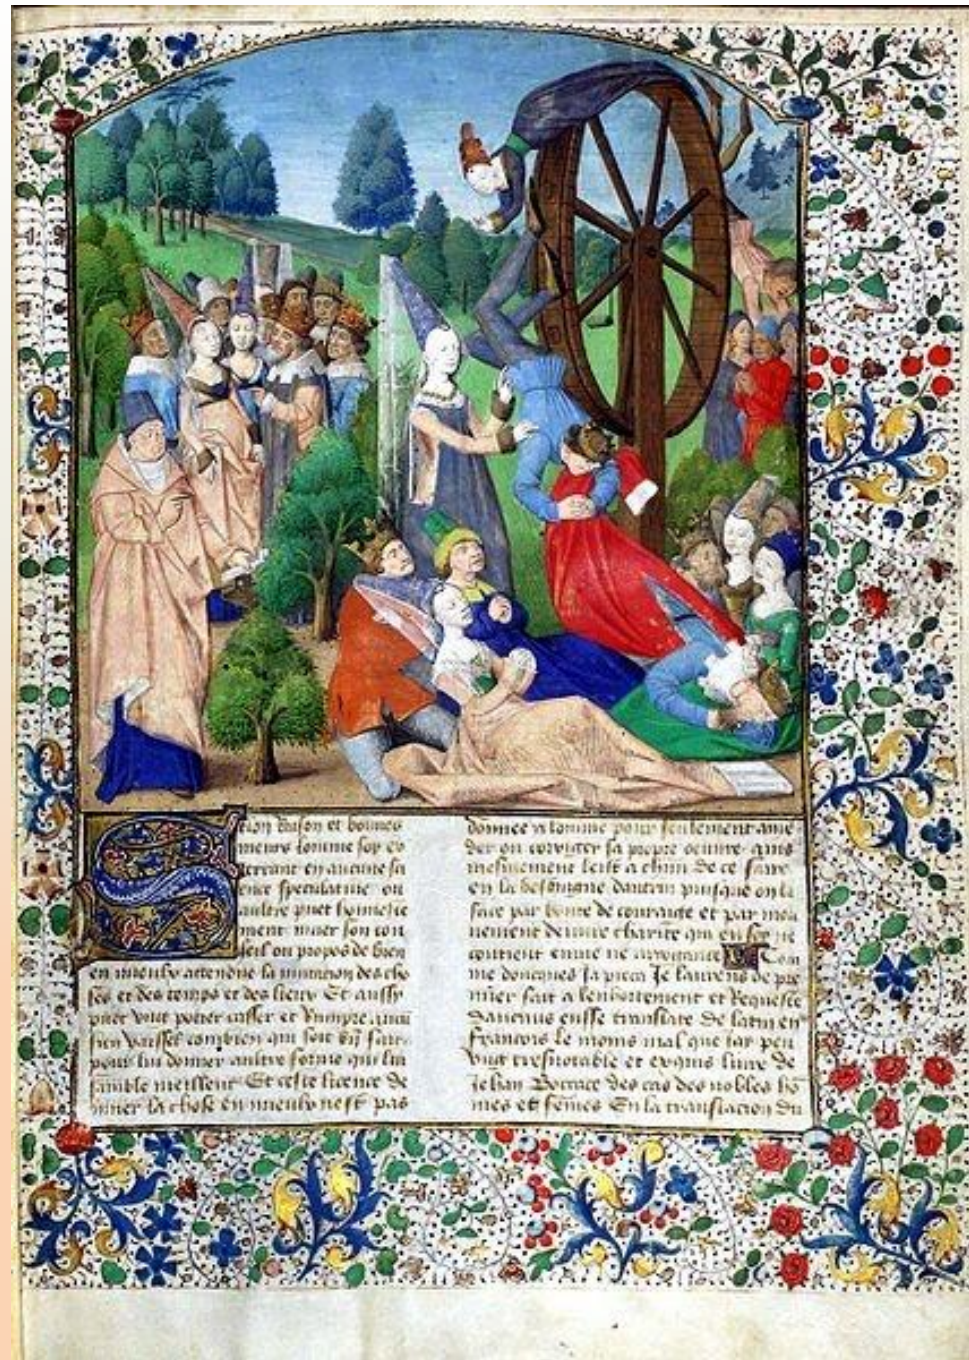 Selon raison et bonnes
meurs lomme soy ex
ercant en aucune sci
ence speculative ou
aultre puet honneste
ment muer son con
seil ou propos de bien
en mieulx attendue la mutacion des cho
ses et des temps et des lieux Et aussy
puet ung potier casser et rompre aucun
sien vaissel combien qui soit bien fait
pour lui donner aultre forme qui lui
samble meilleur Et ceste licence de
muer la chose en mieulx nest pas
donnee a lomme pour seulement amen
der ou corrigier sa propre oeuvre
mesmement leist a chun de ce faire
en la besoigne dautrui puisque on le
face par bonté de couraige et par mou
vement de pure charite qui en soy ne
contient envie ne arrogance Com
me doncques ja pieca Je laurens de pre
mier fait a lenhortement et Requeste
daucuns eusse translaté de latin en
francois le moins mal que iay peu
ung tresnotable et exquis livre de
Jehan Boccace des cas des nobles hõ
mes et fẽmes En la translacion du